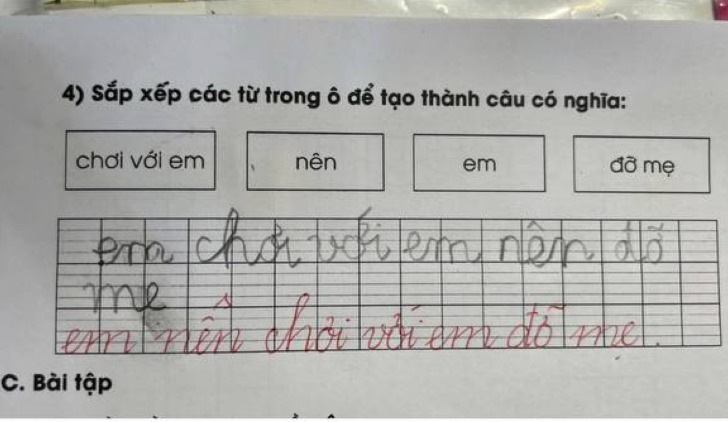 4) Sắp xếp các từ trong ô để tạo thành câu có nghĩa:
chơi với em nên em đỡ mẹ
em chơi với em nên đỡ
mẹ
em nên chơi với em đỡ mẹ.
C. Bài tập